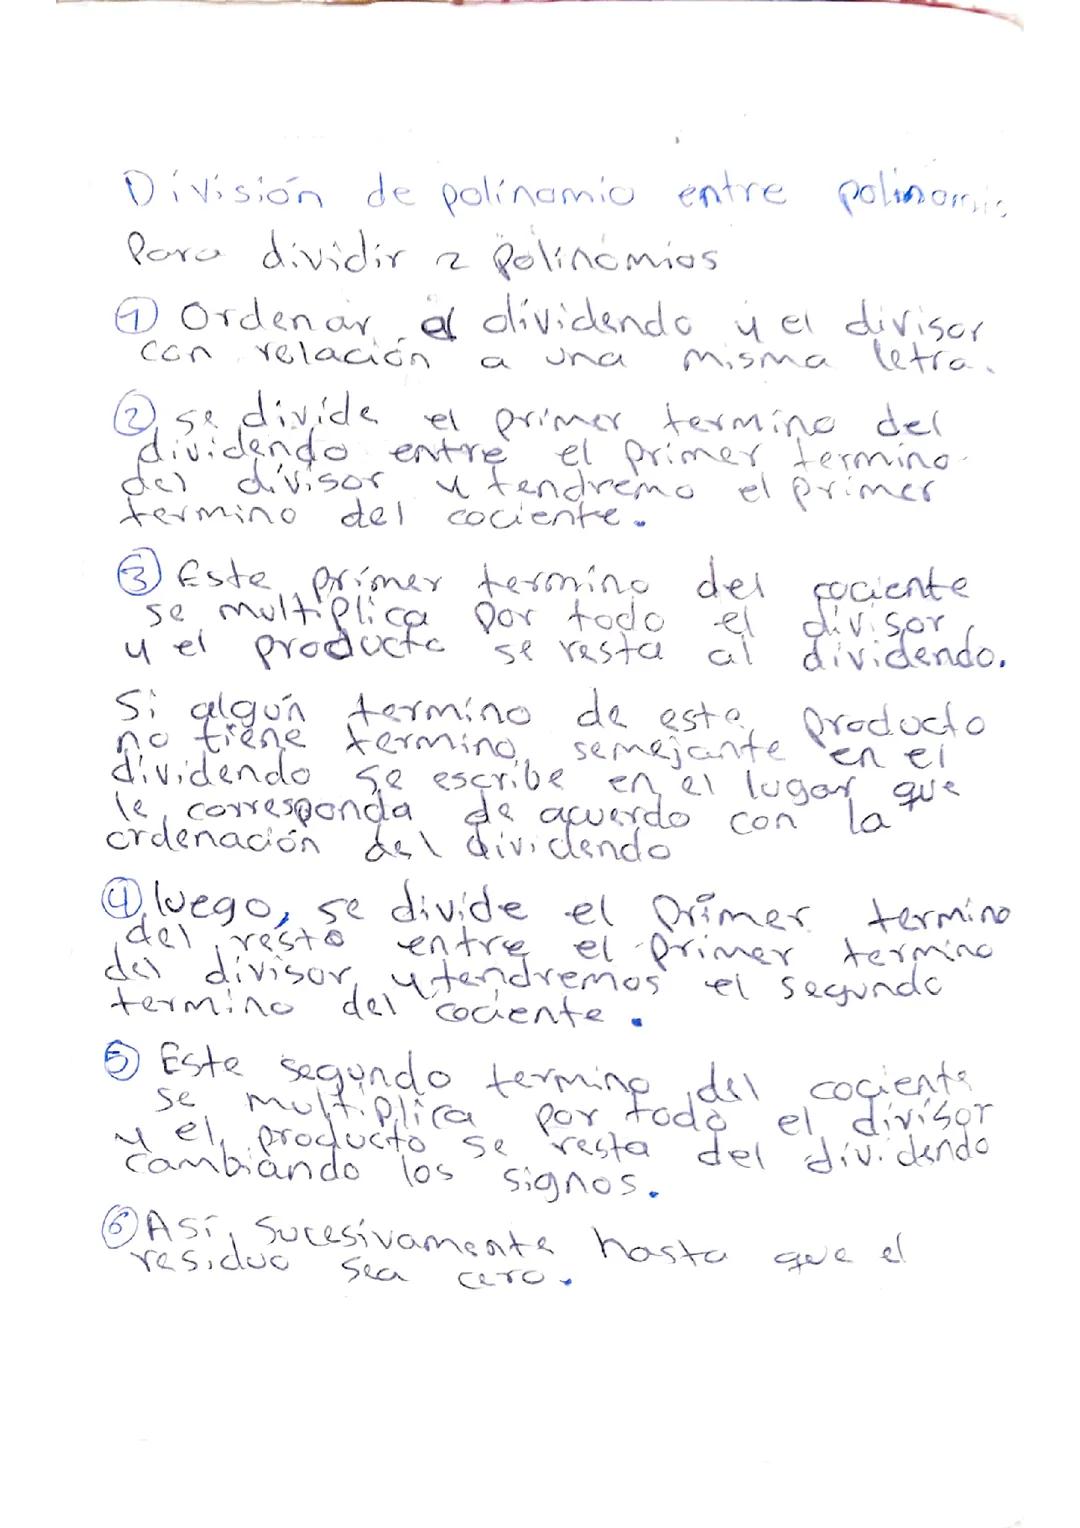 División de polinomio entre polinomio
Para dividir 2 Polinomios
① Ordenar el dividendo y el divisor
con relación a una misma letra.
② se divide el primer termino del
dividendo entre el primer termino
del divisor y tendremo el primer
termino del cociente.
③ Este primer termino del cociente
se multiplica por todo el divisor
y el producto se resta al dividendo.
Si algún termino de este producto
no tiene termino semejante en el
dividendo se escribe en el lugar que
le corresponda de acuerdo con la
ordenación del dividendo
④ luego, se divide el primer termino
del resto entre el primer termino
del divisor y tendremos el segundo
termino del cociente.
⑤ Este segundo termino del cociente
se multiplica por todo el divisor
y el producto se resta del dividendo
cambiando los signos.
⑥ Así, sucesivamente hasta que el
residuo sea cero.